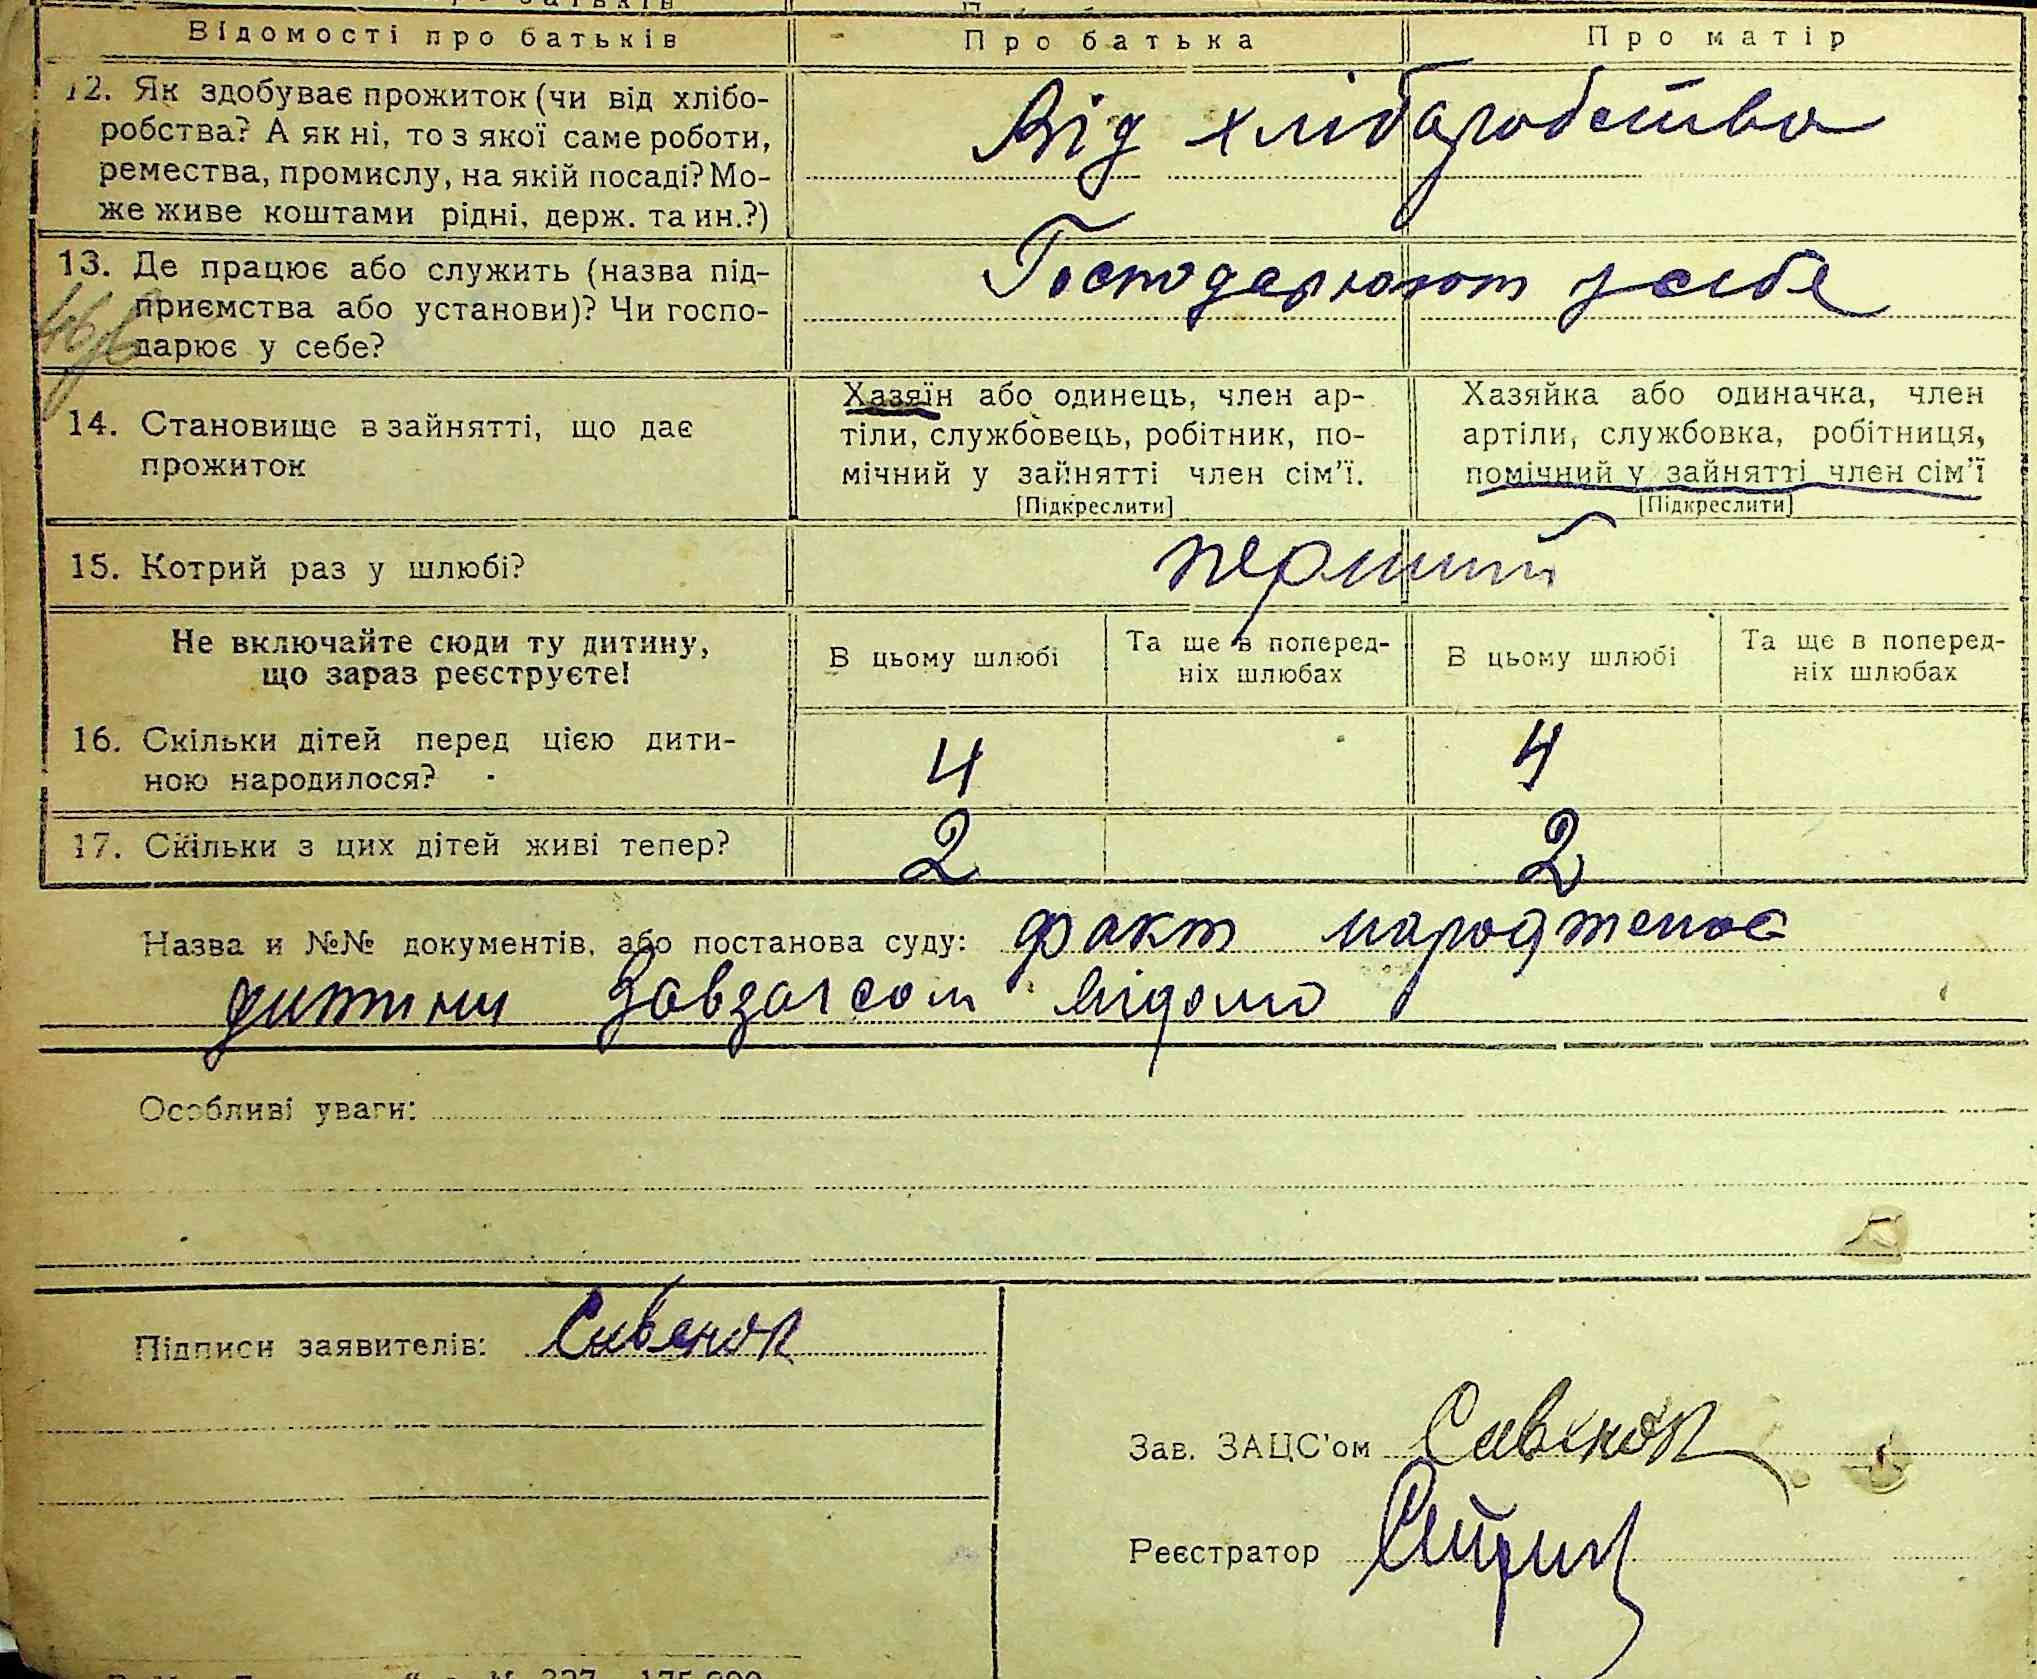 Відомості про батьків Про батька Про матір
12. Як здобуває прожиток (чи від хлібо-
робства? А як ні, то з якої саме роботи,
ремества, промислу, на якій посаді? Мо-
же живе коштами рідні, держ. та ин.?)
Від хліборобства
13. Де працює або служить (назва під-
приємства або установи)? Чи госпо-
дарює у себе?
Господарюют у себе
14. Становище в зайнятті, що дає
прожиток
Хазяїн або одинець, член ар-
тіли, службовець, робітник, по-
мічний у зайнятті член сім'ї.
[Підкреслити]
Хазяйка або одиначка, член
артіли, службовка, робітниця,
помічний у зайнятті член сім'ї
[Підкреслити]
15. Котрий раз у шлюбі?
перший
Не включайте сюди ту дитину,
що зараз реєструєте!
В цьому шлюбі
Та ще в поперед-
ніх шлюбах
В цьому шлюбі
Та ще в поперед-
ніх шлюбах
16. Скільки дітей перед цією дити-
ною народилося?
4 4
17. Скільки з цих дітей живі тепер? 2 2
Назва и №№ документів, або постанова суду: факт народженоє
дитини Завзагсом відомо
Особливі уваги:
Підписи заявителів:
Зав. ЗАЦС'ом
Реєстратор